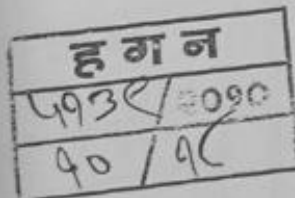 ह ग न
५१३९/२०१०
१०/१८